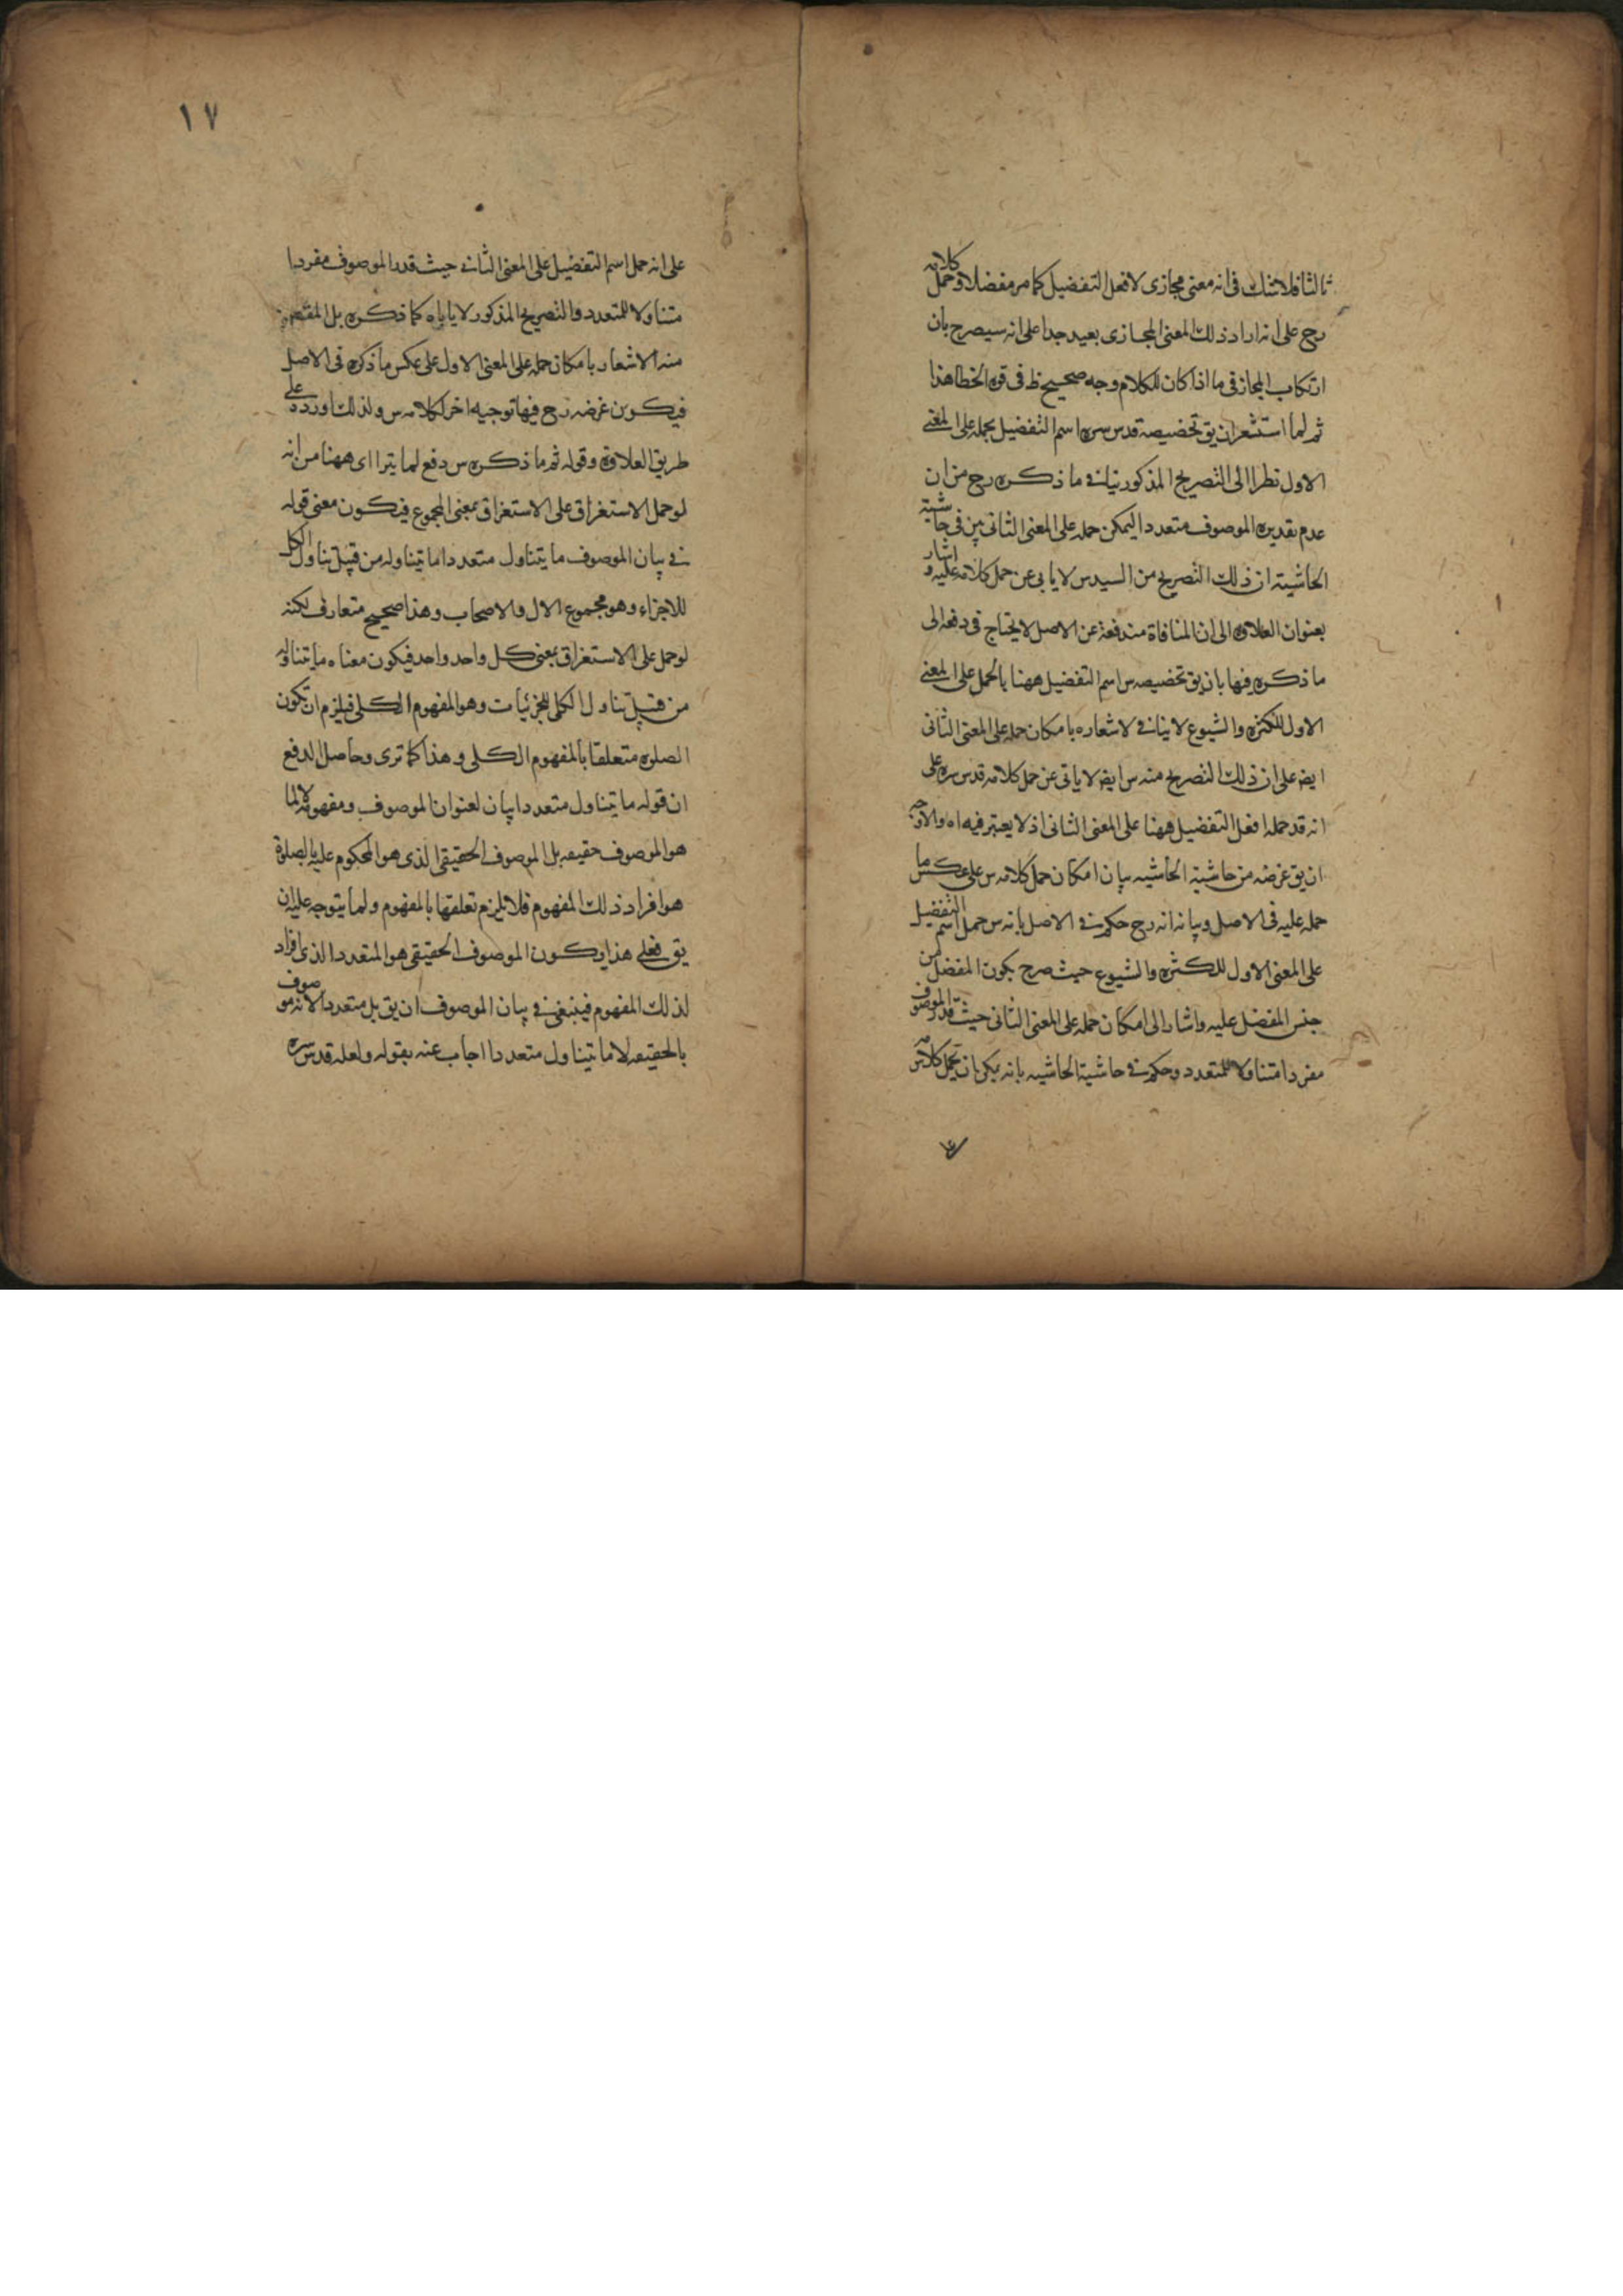 ثالثا فلا شك فى انه معنى مجازى لافعل التفضيل كما مر مفضلا وحمل كلامه
رح على انه اراد ذلك المعنى المجازى بعيد جدا على انه سيصرح بان
ارتكاب المجاز فى ما اذا كان للكلام وجه صحيح ظ فى قوة الخطا هذا
ثم لما استشعر ان يق تخصيصه قدس سره اسم التفضيل بحمله على المعنى
الاول نظرا الى التصريح المذكور ينافى ما ذكره رح من ان
عدم تقديره الموصوف متعددا ليمكن حمله على المعنى الثانى بين فى حاشية
الحاشيته ان ذلك التصريح من السيد س لا يابى عن حمل كلامه عليه و اشار
بعنوان العلاوه الى ان المنافاة مندفعة عن الاصل لا يحتاج فى دفعه الى
ما ذكره فيها بان يق تخصيصه س اسم التفضيل ههنا بالحمل على المعنى
الاول للكثره والشيوع لا ينافى لاشعاره بامكان حمله على المعنى الثانى
ايض على ان ذلك التصريح منه س ايض لا ياتى عن حمل كلامه قدس سره على
انه قد حمله افعل التفضيل ههنا على المعنى الثانى اذ لا يعتبر فيه اه والاوجه
ان يق غرضه من حاشية الحاشيه بيان امكان حمل كلامه س على عكس ما
حمله عليه فى الاصل وبيانه انه رح حكم فى الاصل بانه س حمل اسم التفضيل
على المعنى الاول للكثره والشيوع حيث صرح بكون المفضل من
جنس المفضل عليه واشار الى امكان حمله على المعنى الثانى حيث قدر الموصوف
مفردا متناولا للمتعدد وحكم فى حاشية الحاشيه بانه يمكن ان يحمل كلامه س
١٧
على انه حمل اسم التفضيل على المعنى الثانى حيث قدر الموصوف مفردا
متناولا للمتعدد والتصريح المذكور لا ياباه كما ذكره بل المقصود
منه الاشعار بامكان حمله على المعنى الاول على عكس ما ذكره فى الاصل
فيكون غرضه رح فيها توجيه اخر لكلامه س ولذلك اورده على
طريق العلاوة وقوله ثم ما ذكره س دفع لما يتراا اى ههنا من انه
لو حمل الاستغراق على الاستغراق بمعنى المجموع فيكون معنى قوله
فى بيان الموصوف ما يتناول متعددا ما يتناوله من قبيل تناول الكل
للاجزاء وهو مجموع الال والاصحاب وهذا صحيح متعارف لكنه
لو حمل على الاستغراق بمعنى كل واحد واحد فيكون معناه ما يتناوله
من قبيل تناول الكلى للجزئيات وهو المفهوم الكلى فيلزم ان تكون
الصلوه متعلقا بالمفهوم الكلى وهذا كما ترى وحاصل الدفع
ان قوله ما يتناول متعددا بيان لعنوان الموصوف ومفهومه لا لما
هو الموصوف حقيقه بل الموصوف الحقيقى الذى هو المحكوم عليه بالصلوة
هو افراد ذلك المفهوم فلا يلزم تعلقها بالمفهوم ولما يتوجه عليه ان
يق فعلى هذا يكون الموصوف الحقيقى هو المتعدد الذى افراد
لذلك المفهوم فينبغى فى بيان الموصوف ان يق بل متعددا لانه موصوف
بالحقيقه لا ما يتناول متعددا اجاب عنه بقوله ولعله قدس سره